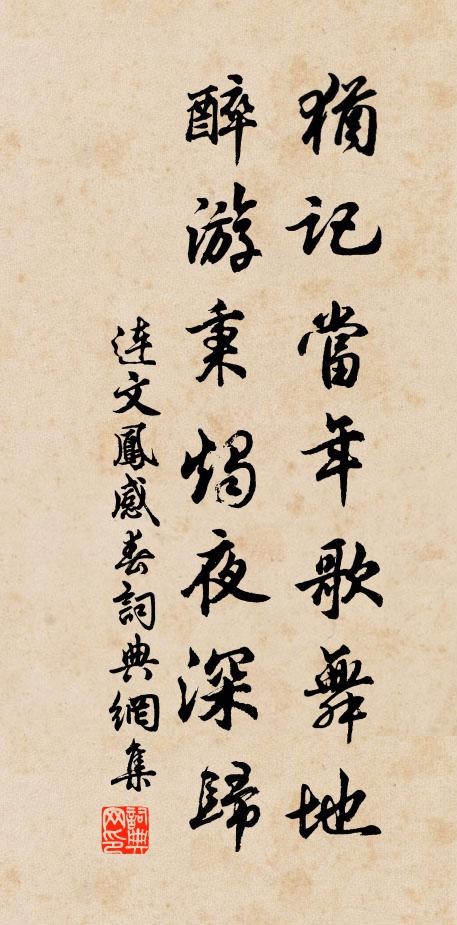 猶記當年歌舞地
醉游秉燭夜深歸
连文鳳感春詞典網集
詞典网印